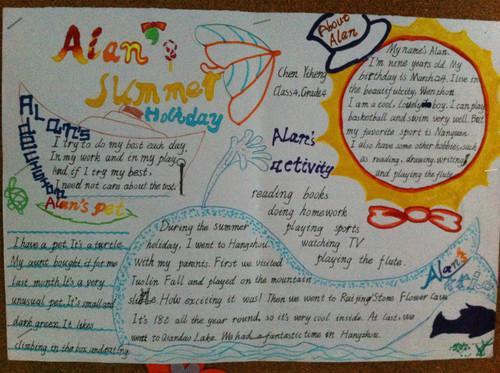 Alan's
Summer
Holiday
About
Alan
My name's Alan.
I'm nine years old. My
birthday is March 24. I live in
the beautiful city. Wenzhou.
I am a cool boy. I can play
basketball and swim very well. But
my favorite sport is Nanquan.
I also have some other hobbies, such
as reading, drawing, writing
and playing the flute.
Chen Yiheng
Class4, Grade4
Alan's
I try to do my best each day.
In my work and in my play,
And if I try my best,
I need not care about the rest.
Alan's
activity
reading books
doing homework
playing sports
watching TV
playing the flute.
Alan's pet
I have a pet. It's a turtle.
My aunt bought it for me
last month. It's a very
unusual pet. It's small and
dark green. It likes
climbing in the box and eating.
Alan's
During the summer
holiday, I went to Hangzhou
with my parents. First we visited
Fall and played on the mountain
slide. How exciting it was! Then we went to Stone Flower Cave
It's 18 all the year round, so it's very cool inside. At last, we
went to Qiandao Lake. We had a fantastic time in Hangzhou.